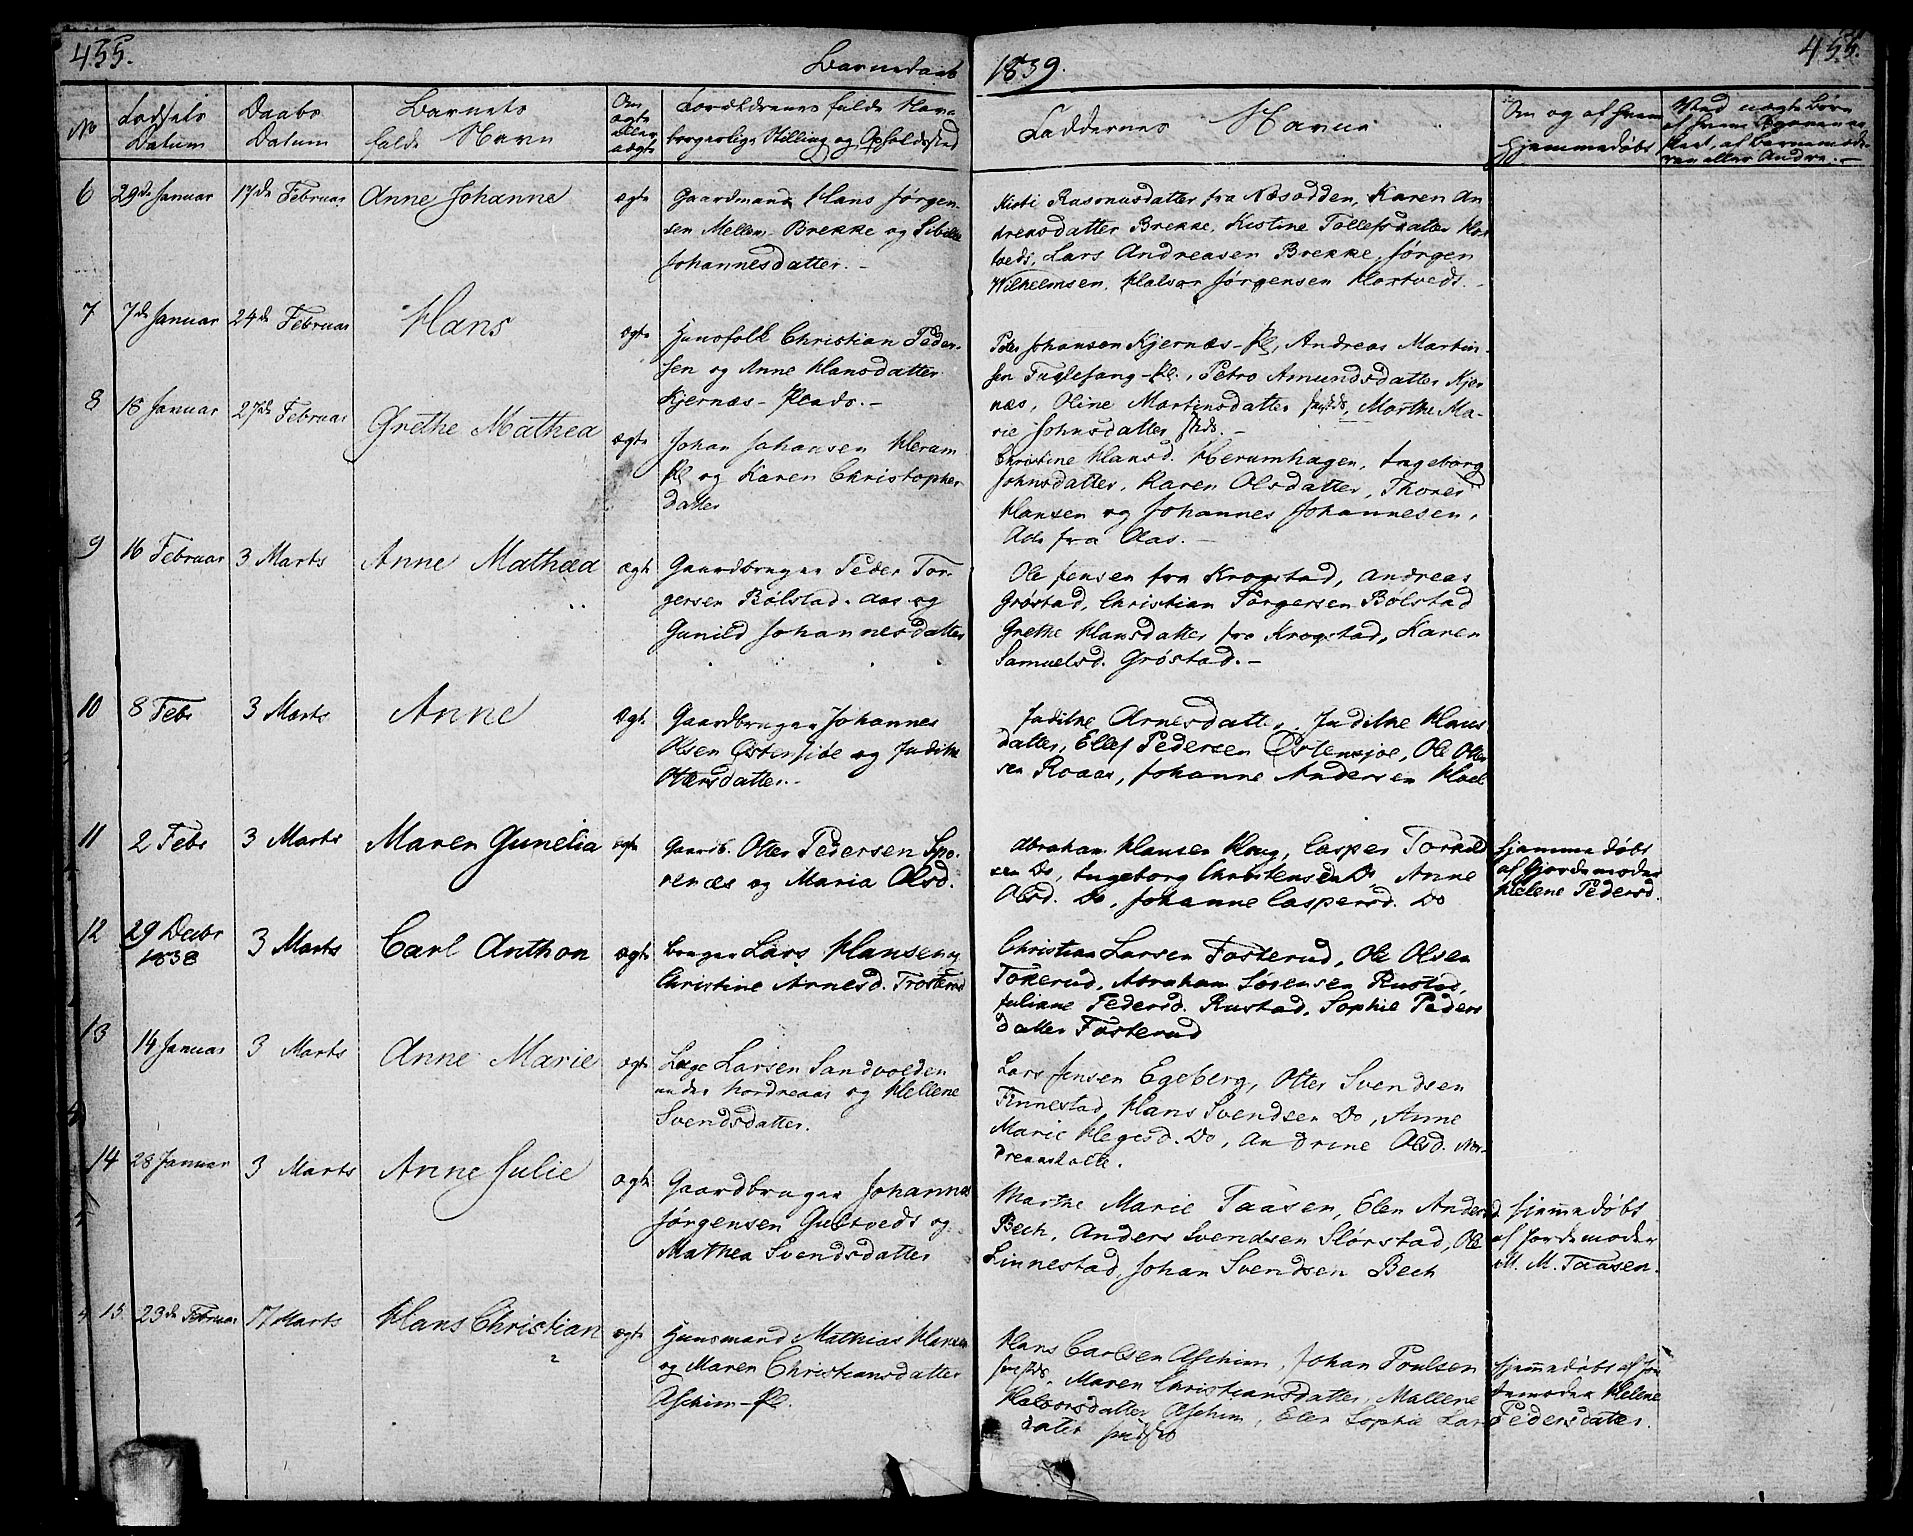 455. Barnedaab 1839. 455.
No
Fødsels Datum
Daabs Datum
Barnets fulde Navn
Om ægte eller uægte
Forældrenes fulde Navn borgerlige Stilling og Opholdssted
Faddernes Navne
Om og af hvem hjemmedøbt
6 29de Januar 17de Februar Anne Johanne ægte
Gaardmand Hans Jørgen-
sen Mellem-Brekke og Sibille
Johannesdatter.-
Kisti Rasmusdatter fra Næsodden, Karen An
dreasdatter Brekke, Kistine Tollefsdatter Hor
tvedt, Lars Andreasen Brekke, Jørgen
Wilhelmsen, Halvor Jørgensen Hortvedt.-
7 7de Januar 24de Februar Hans ægte
Huusfolk Christian Peder-
sen og Anne Hansdatter
Kjernæs-Plads.-
Peder Johansen Kjernæs-Pl, Andreas Martin-
sen Fuglesang-Pl., Petro Amundsdatter Kjer
næs, Oline Martinsdatter Marthe Ma-
rie Johnsdatter
8 18 Januar 27de Februar Grethe Mathea ægte
Johan Johansen Herum
Pl og Karen Christopher
datter
Christine Hansd. Herumhagen, Ingeborg
Johnsdatter, Karen Olsdatter, Thorer
Hansen og Johannes Johannesen,
Alle fra Aas.-
9 16 Februar 3 Marts Anne Mathea ægte
Gaardbruger Peder Tor-
gersen Bølstad-Aas og
Gunild Johannesdatter
Ole Jensen fra Krogstad, Andreas
Grøstad, Christian Torgersen Bølstad
Grethe Hansdatter fra Krogstad, Karen
Samuelsd. Grøstad.-
10 8 Febr 3 Marts Anne ægte
Gaardbruger Johannes
Olsen Østensjøe og Judithe
Ottersdatter.-
Judithe Arnesdatter, Judithe Hans
datter, Ellef Pedersen Østensjøe, Ole Otter
sen Roaas, Johanne Andersen Hoel
11 2 Febr 3 Marts Maren Gunelia ægte
Gaardb. Otter Pedersen Spo-
renæs og Maria Olsd.
Abraham Hansen Houg, Casper Torkild
sen Do, Ingeborg Christensen Do, Anne
Olsd. Do, Johanne Caspersd. Do
hjemmedøbt
af Gjordemoder
Helene Pedersd.
12 29 Decbr 1838 3 Marts Carl Anthon ægte
bruger Lars Hansen og
Christine Arnesd. Trosterud
Christian Larsen Fosterud, Ole Olsen
Tokerud, Abraham Sørensen Rustad,
Juliane Pedersd. Rustad, Sophie Peders
datter Fosterud
13 14 Januar 3 Marts Anne Marie ægte
Lage Larsen Sandvolden
under Nordreaas og Hellene
Svendsdatter.
Lars Jensen Egeberg, Otter Svendsen
Finnestad, Hans Svendsen Do, Anne
Marie Hegesd. Do, Andrine Olsd. Nor-
dreaas
14 28 Januar 3 Marts Anne Julie ægte
Gaardbruger Johannes
Jørgensen Gultvedt og
Mathea Svendsdatter
Marthe Marie Taasen, Elen Andersd.
Bech, Anders Svendsen Slørstad, Ole
Linnestad, Johan Svendsen Bech
hjemmedøbt
af Jordemoder
M. M. Taasen.
15 23de Februar 17 Marts Hans Christian ægte
Huusmand Mathias Hansen
og Maren Christiansdatter
Aschim-Pl.
Hans Carlsen Aschim, Johan Poulsen
Maren Christiansdatter, Mallene
Halvorsdatter Aschim, Elen Sophie Lars
datter
hjemmedøbt af Jor
demoder Helene
Pedersdatter.